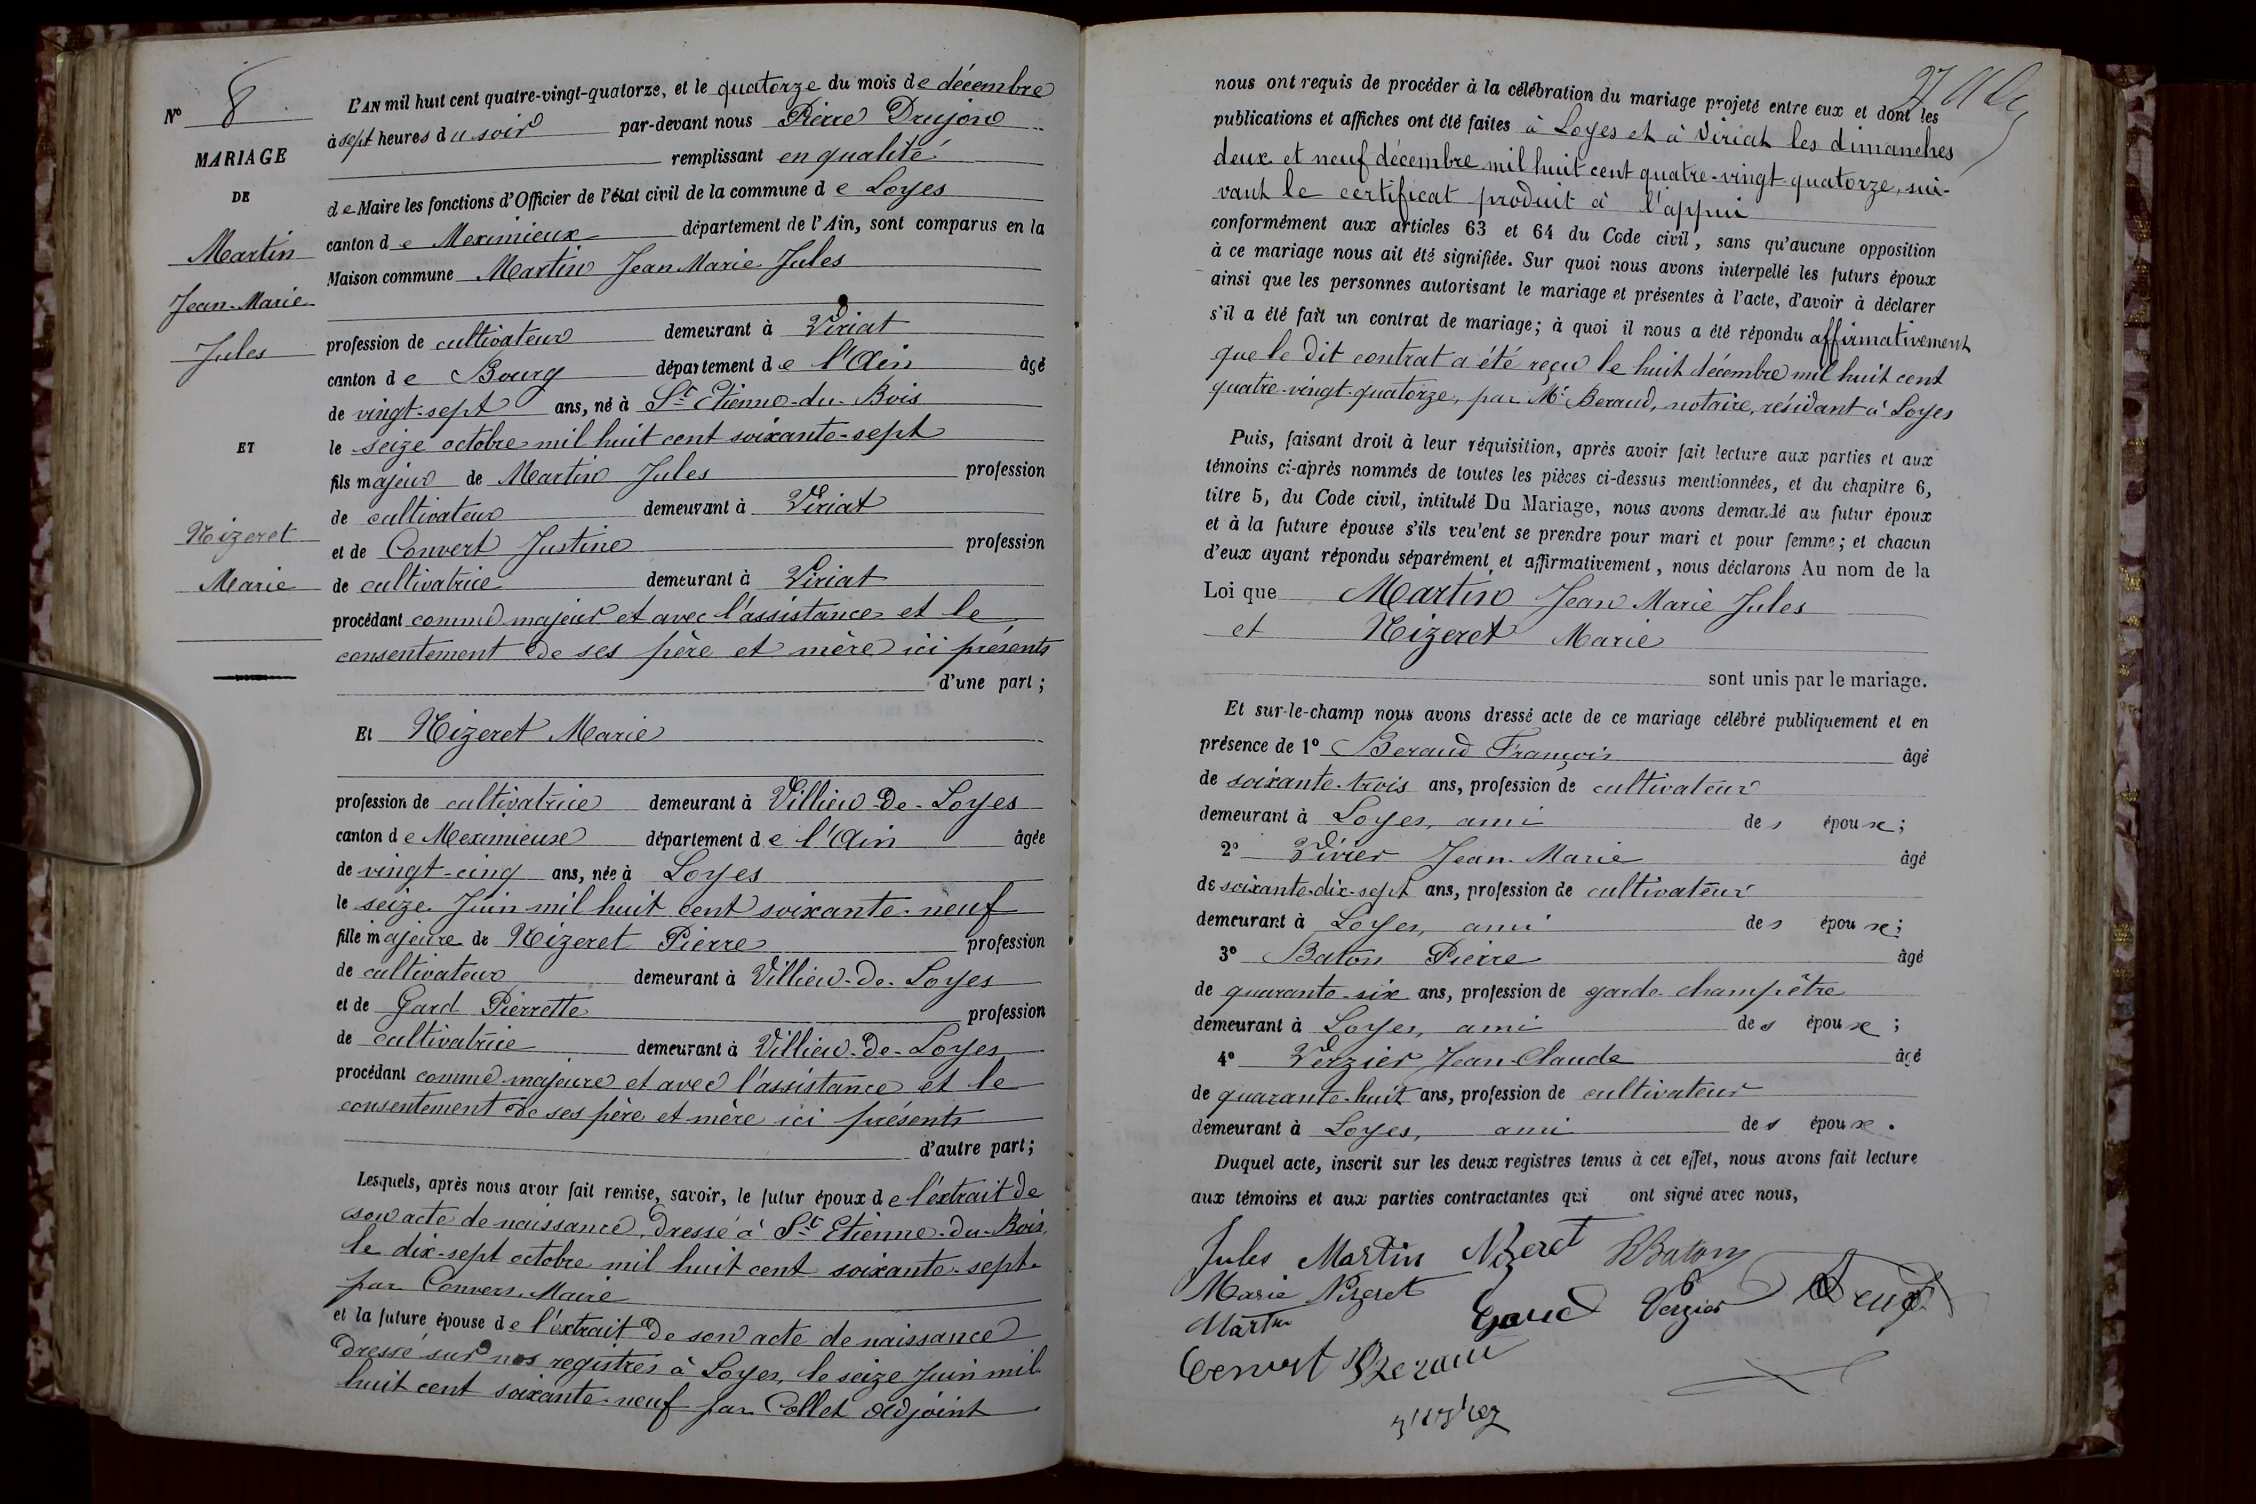 N° 8
MARIAGE
DE
Martin
Jean-Marie
Jules
ET
Nizeret
Marie
L'AN mil huit cent quatre-vingt-quatorze, et le quatorze du mois de décembre
à sept heures du soir par-devant nous Pierre Drujon
remplissant en qualité
de Maire les fonctions d'Officier de l'état civil de la commune de Loyes
canton de Meximieux département de l'Ain, sont comparus en la
Maison commune Martin Jean Marie Jules
profession de cultivateur demeurant à Viriat
canton de Bourg département de l'Ain âgé
de vingt-sept ans, né à St Etienne-du-Bois
le seize octobre mil huit cent soixante-sept
fils majeur de Martin Jules profession
de cultivateur demeurant à Viriat
et de Convert Justine profession
de cultivatrice demeurant à Viriat
procédant comme majeur et avec l'assistance et le
consentement de ses père et mère ici présents
d'une part;
Et Nizeret Marie
profession de cultivatrice demeurant à Villieu-De-Loyes
canton de Meximieux département de l'Ain âgée
de vingt-cinq ans, née à Loyes
le seize Juin mil huit cent soixante-neuf
fille majeure de Nizeret Pierre profession
de cultivateur demeurant à Villieu-De-Loyes
et de Gard Pierrette profession
de cultivatrice demeurant à Villieu-De-Loyes
procédant comme majeure et avec l'assistance et le
consentement de ses père et mère ici présents
d'autre part;
Lesquels, après nous avoir fait remise, savoir, le futur époux de l'extrait de
son acte de naissance, dressé à St Etienne-du-Bois,
le dix-sept octobre mil huit cent soixante-sept
par Convers, Maire
et la future épouse de l'extrait de son acte de naissance
dressé sur nos registres à Loyes, le seize Juin mil
huit cent soixante-neuf par Collet Adjoint
nous ont requis de procéder à la célébration du mariage projeté entre eux et dont les
publications et affiches ont été faites à Loyes et à Viriat les dimanches
deux et neuf décembre mil huit cent quatre-vingt-quatorze, sui-
vant le certificat produit à l'appui
conformément aux articles 63 et 64 du Code civil, sans qu'aucune opposition
à ce mariage nous ait été signifiée. Sur quoi nous avons interpellé les futurs époux
ainsi que les personnes autorisant le mariage et présentes à l'acte, d'avoir à déclarer
s'il a été fait un contrat de mariage; à quoi il nous a été répondu affirmativement
que le dit contrat a été reçu le huit décembre mil huit cent
quatre-vingt-quatorze, par Me Beraud, notaire, résidant à Loyes
Puis, faisant droit à leur réquisition, après avoir fait lecture aux parties et aux
témoins ci-après nommés de toutes les pièces ci-dessus mentionnées, et du chapitre 6,
titre 5, du Code civil, intitulé Du Mariage, nous avons demandé au futur époux
et à la future épouse s'ils veulent se prendre pour mari et pour femme; et chacun
d'eux ayant répondu séparément et affirmativement, nous déclarons Au nom de la
Loi que Martin Jean Marie Jules
et Nizeret Marie
sont unis par le mariage.
Et sur-le-champ nous avons dressé acte de ce mariage célébré publiquement et en
présence de 1° Beraud François âgé
de soixante-trois ans, profession de cultivateur
demeurant à Loyes, ami des époux;
2° Vivier Jean-Marie âgé
de soixante-dix-sept ans, profession de cultivateur
demeurant à Loyes, ami des époux;
3° Baton Pierre âgé
de quarante-six ans, profession de garde-champêtre
demeurant à Loyes, ami des époux;
4° Verzier Jean-Claude âgé
de quarante-huit ans, profession de cultivateur
demeurant à Loyes, ami des époux.
Duquel acte, inscrit sur les deux registres tenus à cet effet, nous avons fait lecture
aux témoins et aux parties contractantes qui ont signé avec nous,
Jules Martin Nizeret Baton
Marie Nizeret
Martin Gard Verzier
Convert Beraud